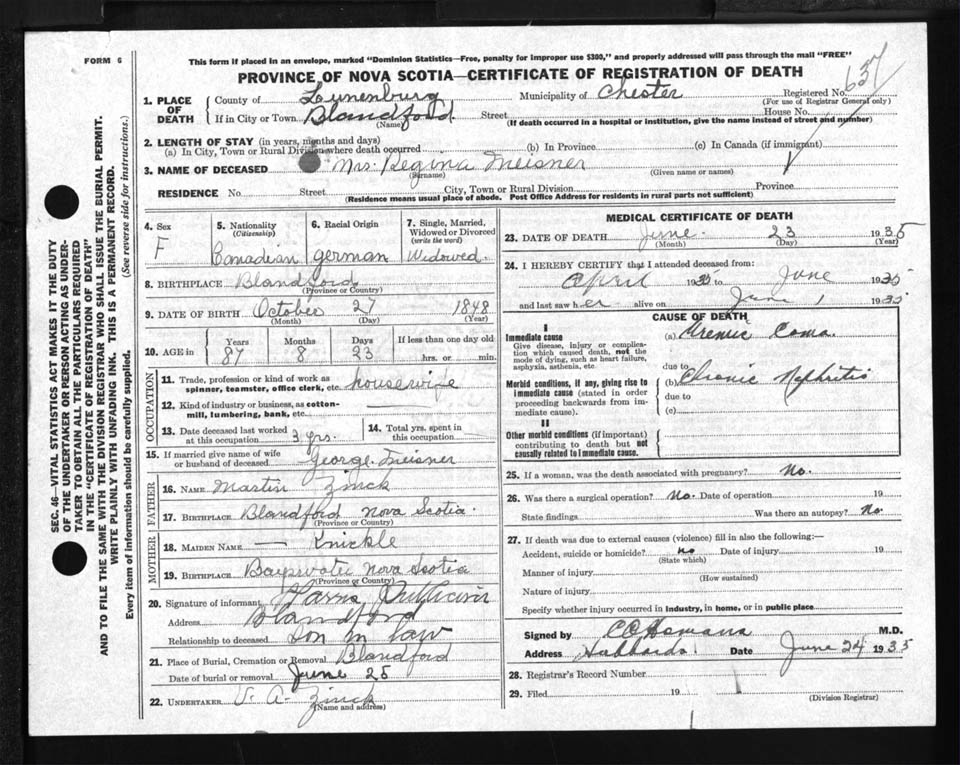 FORM 6
This form if placed in an envelope, marked "Dominion Statistics—Free, penalty for improper use $300," and properly addressed will pass through the mail "FREE"
PROVINCE OF NOVA SCOTIA—CERTIFICATE OF REGISTRATION OF DEATH
637
1. PLACE OF DEATH { County of Lunenburg Municipality of Chester Registered No.
(For use of Registrar General only)
If in City or Town Blandford Street House No.
(Name) (If death occurred in a hospital or institution, give the name instead of street and number)
2. LENGTH OF STAY (in years, months and days)
(a) In City, Town or Rural Division where death occurred (b) In Province (c) In Canada (if immigrant)
3. NAME OF DECEASED Mrs. Regina Meisner
(Surname) (Given name or names)
RESIDENCE No. Street City, Town or Rural Division Province
(Residence means usual place of abode. Post Office Address for residents in rural parts not sufficient)
4. Sex F
5. Nationality (Citizenship) Canadian
6. Racial Origin german
7. Single, Married, Widowed or Divorced (write the word) Widowed.
8. BIRTHPLACE Blandford
(Province or Country)
9. DATE OF BIRTH October 27 1848
(Month) (Day) (Year)
10. AGE in Years Months Days If less than one day old
87 8 23 hrs. or min.
OCCUPATION
11. Trade, profession or kind of work as spinner, teamster, office clerk, etc. housewife
12. Kind of industry or business, as cotton-mill, lumbering, bank, etc. —
13. Date deceased last worked at this occupation 3 yrs.
14. Total yrs. spent in this occupation
15. If married give name of wife or husband of deceased George Meisner
FATHER
16. NAME Martin Zinck
17. BIRTHPLACE Blandford Nova Scotia.
(Province or Country)
MOTHER
18. MAIDEN NAME — Knickle
19. BIRTHPLACE Bayswater Nova Scotia
(Province or Country)
20. Signature of informant
Address Blandford
Relationship to deceased Son in law
21. Place of Burial, Cremation or Removal Blandford
Date of burial or removal June 25
22. UNDERTAKER A. Zinck
(Name and address)
MEDICAL CERTIFICATE OF DEATH
23. DATE OF DEATH June 23 1935
(Month) (Day) (Year)
24. I HEREBY CERTIFY that I attended deceased from:
April 1935 to June 1935
and last saw her alive on June 1, 1935
CAUSE OF DEATH
I
Immediate cause
Give disease, injury or complication which caused death, not the mode of dying, such as heart failure, asphyxia, asthenia, etc.
(a) Uremic Coma.
due to
Morbid conditions, if any, giving rise to immediate cause (stated in order proceeding backwards from immediate cause).
(b) Chronic Nephritis
due to
(c)
II
Other morbid conditions (if important) contributing to death but not causally related to immediate cause.
25. If a woman, was the death associated with pregnancy? No.
26. Was there a surgical operation? No. Date of operation 19
State findings Was there an autopsy? No
27. If death was due to external causes (violence) fill in also the following:—
Accident, suicide or homicide? no Date of injury 19
(State which)
Manner of injury
(How sustained)
Nature of injury
Specify whether injury occurred in industry, in home, or in public place
Signed by M.D.
Address Hubbards. Date June 24 1935
28. Registrar's Record Number
29. Filed 19
(Division Registrar)
SEC. 46—VITAL STATISTICS ACT MAKES IT THE DUTY
OF THE UNDERTAKER OR PERSON ACTING AS UNDER-
TAKER TO OBTAIN ALL THE PARTICULARS REQUIRED
IN THE "CERTIFICATE OF REGISTRATION OF DEATH"
AND TO FILE THE SAME WITH THE DIVISION REGISTRAR WHO SHALL ISSUE THE BURIAL PERMIT.
WRITE PLAINLY WITH UNFADING INK. THIS IS A PERMANENT RECORD.
Every item of information should be carefully supplied. (See reverse side for instructions.)